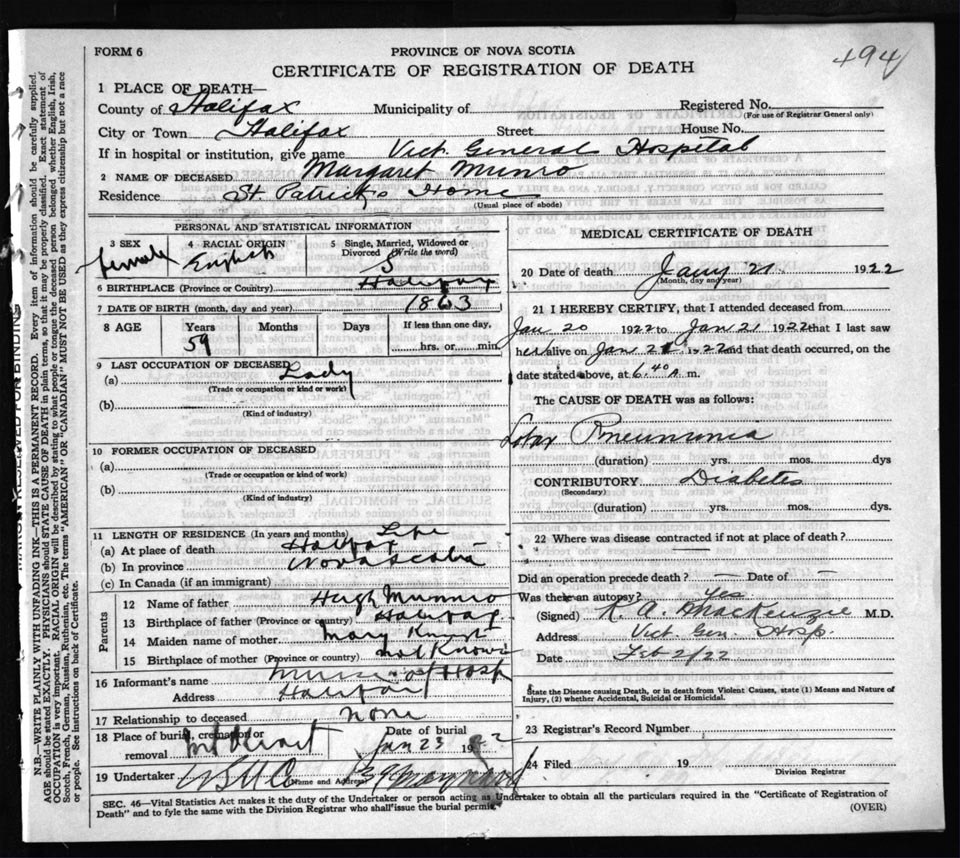 FORM 6
PROVINCE OF NOVA SCOTIA
494
CERTIFICATE OF REGISTRATION OF DEATH
1 PLACE OF DEATH—
County of Halifax Municipality of Registered No.
(For use of Registrar General only)
City or Town Halifax Street House No.
If in hospital or institution, give name Vict. General Hospital
2 NAME OF DECEASED Margaret Munro
Residence St. Patrick's Home
(Usual place of abode)
PERSONAL AND STATISTICAL INFORMATION
3 SEX 4 RACIAL ORIGIN 5 Single, Married, Widowed or Divorced (Write the word)
female English S
6 BIRTHPLACE (Province or Country) Halifax
7 DATE OF BIRTH (month, day and year) 1863
8 AGE Years Months Days If less than one day,
59 hrs. or min
9 LAST OCCUPATION OF DECEASED
(a) Lady
(Trade or occupation or kind or work)
(b)
(Kind of industry)
10 FORMER OCCUPATION OF DECEASED
(a)
(Trade or occupation or kind of work)
(b)
(Kind of industry)
11 LENGTH OF RESIDENCE (In years and months) Life
(a) At place of death Halifax
(b) In province Nova Scotia
(c) In Canada (if an immigrant)
Parents
12 Name of father Hugh Munro
13 Birthplace of father (Province or country) Halifax
14 Maiden name of mother Mary
15 Birthplace of mother (Province or country) not Known
16 Informant's name Hosp
Address Halifax
17 Relationship to deceased none
18 Place of burial, cremation or removal Date of burial
Jan 23 1922
19 Undertaker (Name and Address)
MEDICAL CERTIFICATE OF DEATH
20 Date of death Jany 21 1922
(Month, day and year)
21 I HEREBY CERTIFY, that I attended deceased from
Jan 20 1922 to Jan 21 1922 that I last saw
her alive on Jan 21 1922 and that death occurred, on the
date stated above, at 6.40 A m.
The CAUSE OF DEATH was as follows:
Lobar Pneumonia
(duration) yrs. mos. dys
CONTRIBUTORY Diabetes
(Secondary)
(duration) yrs. mos. dys.
22 Where was disease contracted if not at place of death?
Did an operation precede death? — Date of —
Was there an autopsy? yes
(Signed) K. A. MacKenzie M.D.
Address Vict. Gen. Hosp.
Date Feb 2/22
State the Disease causing Death, or in death from Violent Causes, state (1) Means and Nature of
Injury, (2) whether Accidental, Suicidal or Homicidal.
23 Registrar's Record Number
24 Filed 19
Division Registrar
SEC. 46—Vital Statistics Act makes it the duty of the Undertaker or person acting as Undertaker to obtain all the particulars required in the "Certificate of Registration of
Death" and to fyle the same with the Division Registrar who shall issue the burial permit.
(OVER)
N.B.—WRITE PLAINLY WITH UNFADING INK—THIS IS A PERMANENT RECORD. Every item of information should be carefully supplied.
AGE should be stated EXACTLY. PHYSICIANS should STATE CAUSE OF DEATH in plain terms, so that it may be properly classified. Exact statement of
OCCUPATION is very important. RACIAL ORIGIN will be described by stating to what people or tongue the deceased person belonged whether English, Irish,
Scotch, French, German, Russian, Ruthenian, etc. The terms "AMERICAN" or "CANADIAN" MUST NOT BE USED as they express citizenship but not a race
or people. See instructions on back of Certificate.